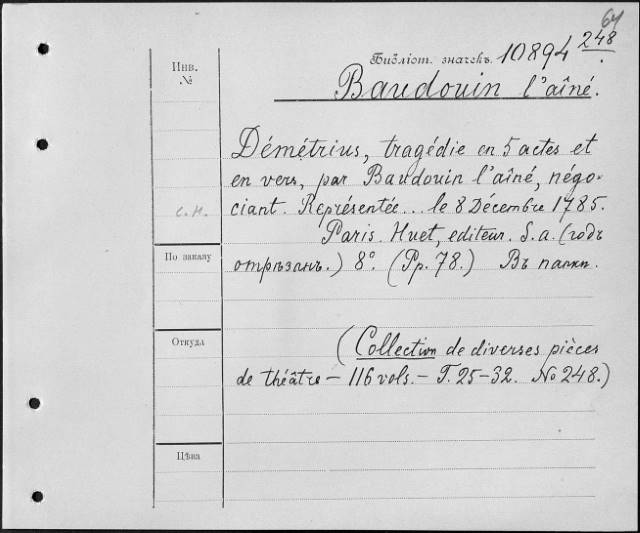 64
Инв.
№
Библіот. значекъ. 10894 248
Baudouin l'aîné.
Démétrius, tragédie en 5 actes et
en vers, par Baudouin l'aîné, négo-
ciant. Représentée... le 8 Décembre 1785.
с.н.
Paris. Huet, editeur. S.a. (годъ
По заказу
отрѣзанъ.) 8°. (Pp. 78.) Въ папки.
Откуда
(Collection de diverses pièces
de théâtre — 116 vols. — T. 25-32. No 248.)
Цѣна